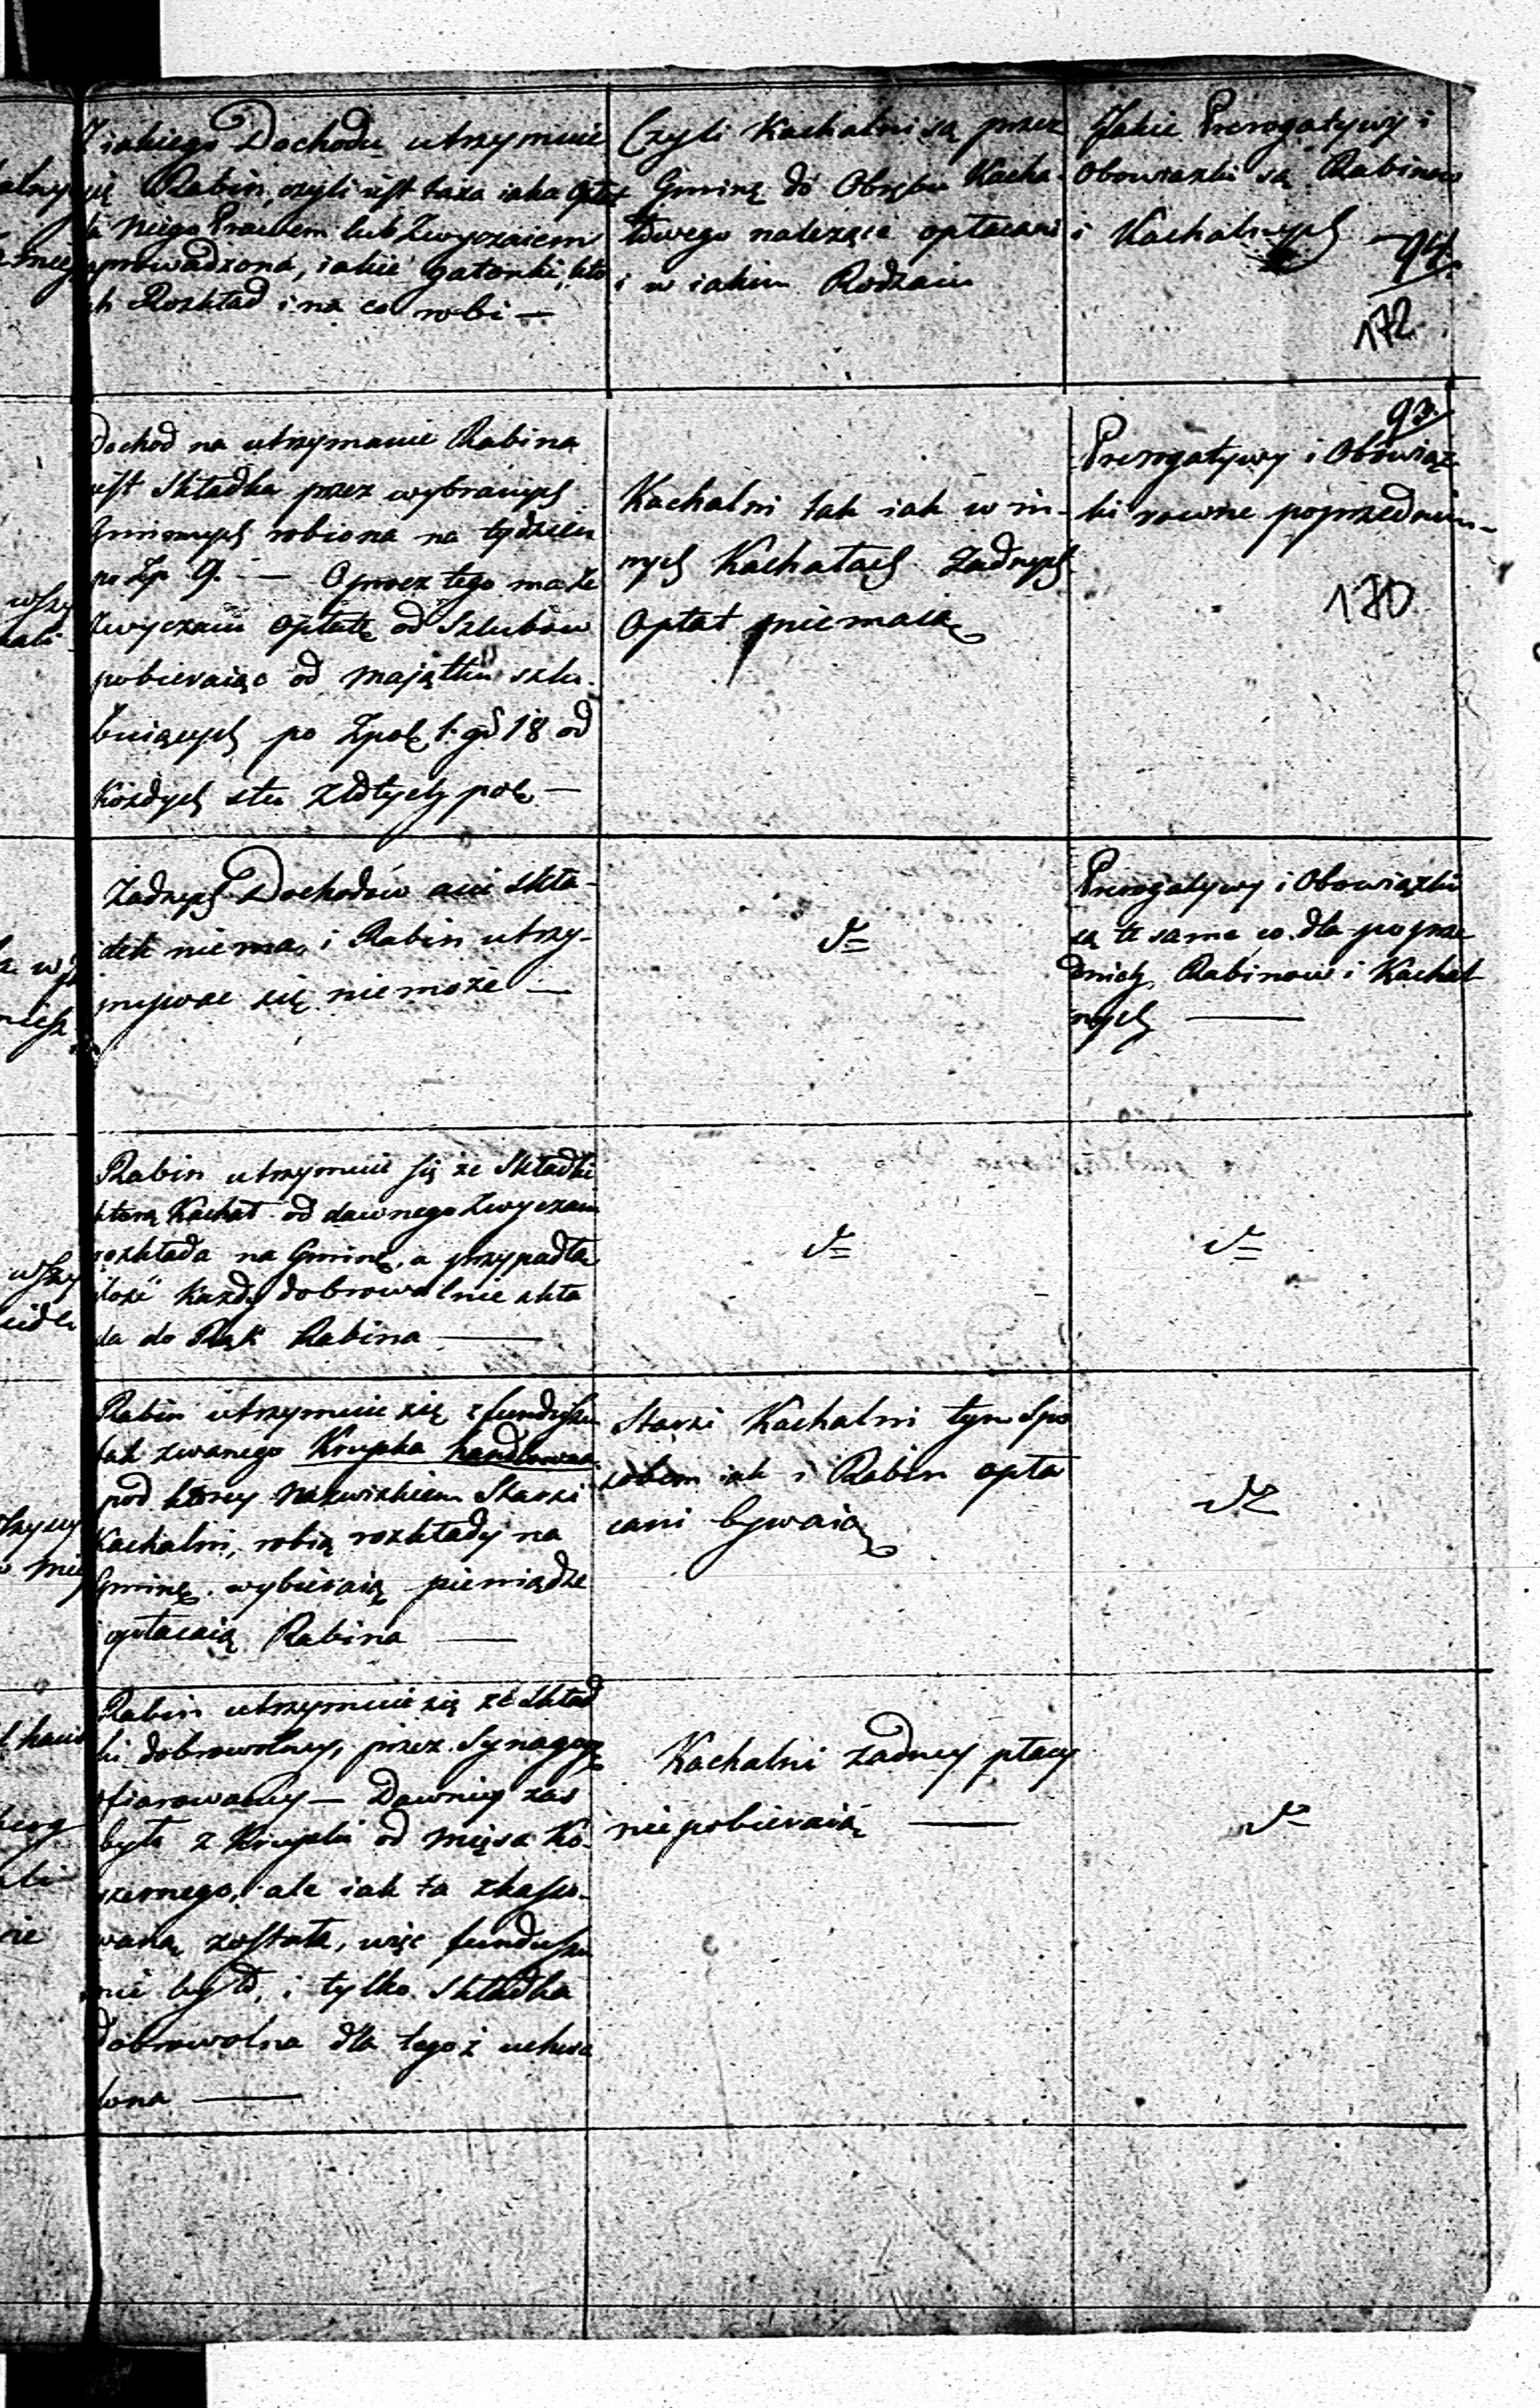 Z iakiego Dochodu utrzymuie
się Rabin, czyli iest taxa iaka Opłat
dla Niego Prawem lub Zwyczaiem
wprowadzona, iakie gatunki, kto
ich Rozkład i na co robi —
Czyli Kachalni są przez
Gminę do Obrębu Kacha-
łowego należące opłacani
i w iakim Rodzaiu
Jakie Prerogatywy i
Obowiązki są Rabinow
i Kachalnych
94
172
Dochod na utrzymanie Rabina
iest Składka przez wybranych
Gminnych robiona na tydzień
po Zp 9. — Oprocz tego ma ze
Zwyczaiu Opłatę od Szlubow
pobieraiąc od Maiątku szlu-
buiących po Zpol. 1. gr 18 od
Kożdych stu Złotych pol. —
Kachalni tak iak w in-
nych Kachałach żadnych
Opłat nie maią
93.
Prerogatywy i Obowiąz-
ki rowne poprzednim —
170
Żadnych Dochodow ani skła-
dek niema, i Rabin utrzy-
mywac się niemoże —
d=
Prerogatywy i Obowiązki
są te same co dla poprze
dnich Rabinow i Kachal
nych —
Rabin utrzymuie się ze Składki
ktorą Kachał od dawnego Zwyczaiu
rozkłada na Gminę, a przypadła
ilość Każdy dobrowolnie skła
da do Rąk Rabina —
d=
d=
Rabin utrzymuie się z funduszu
tak zwanego Krupka handlowna
pod ktorey Nazwiskiem Starsi
Kachalni, robią rozkłady na
Gminę, wybieraią pieniądze
i opłacaią Rabina —
Starsi Kachalni tym Spo
sobem iak i Rabin opła
cani bywaią
d=
Rabin utrzymuie się ze Skład
ki dobrowolney, przez Synagogę
ofiarowaney — Dawniey zas
była z Krupki od Mięsa Ko-
szernego, ale iak ta zkasso-
waną została, więc funduszu
nie było, i tylko Składka
Dobrowolna dla tegoż uchwa
lona —
Kachalni żadney płacy
nie pobieraią —
d=